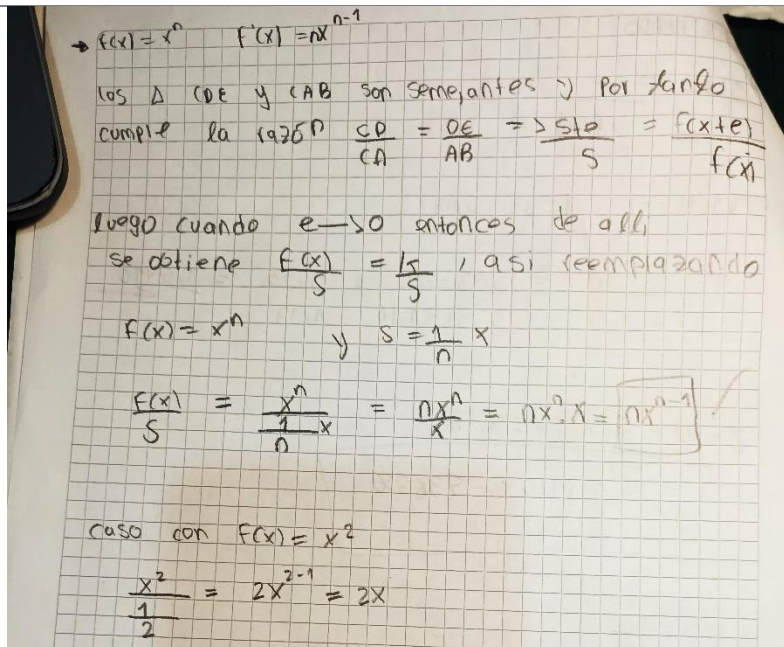 → f(x) = x^n f'(x) = nx^{n-1}
los Δ CDE y CAB son semejantes y por tanto
cumple la razón CD/CA = DE/AB => s+e/s = f(x+e)/f(x)
luego cuando e—>0 entonces de alli
se obtiene f(x)/s = /s , asi reemplazando
f(x) = x^n y s = 1/n x
f(x)/s = x^n/(1/n x) = nx^n/x = nx^n.x = nx^{n-1}
caso con f(x) = x^2
x^2/(1/2) = 2x^{2-1} = 2x